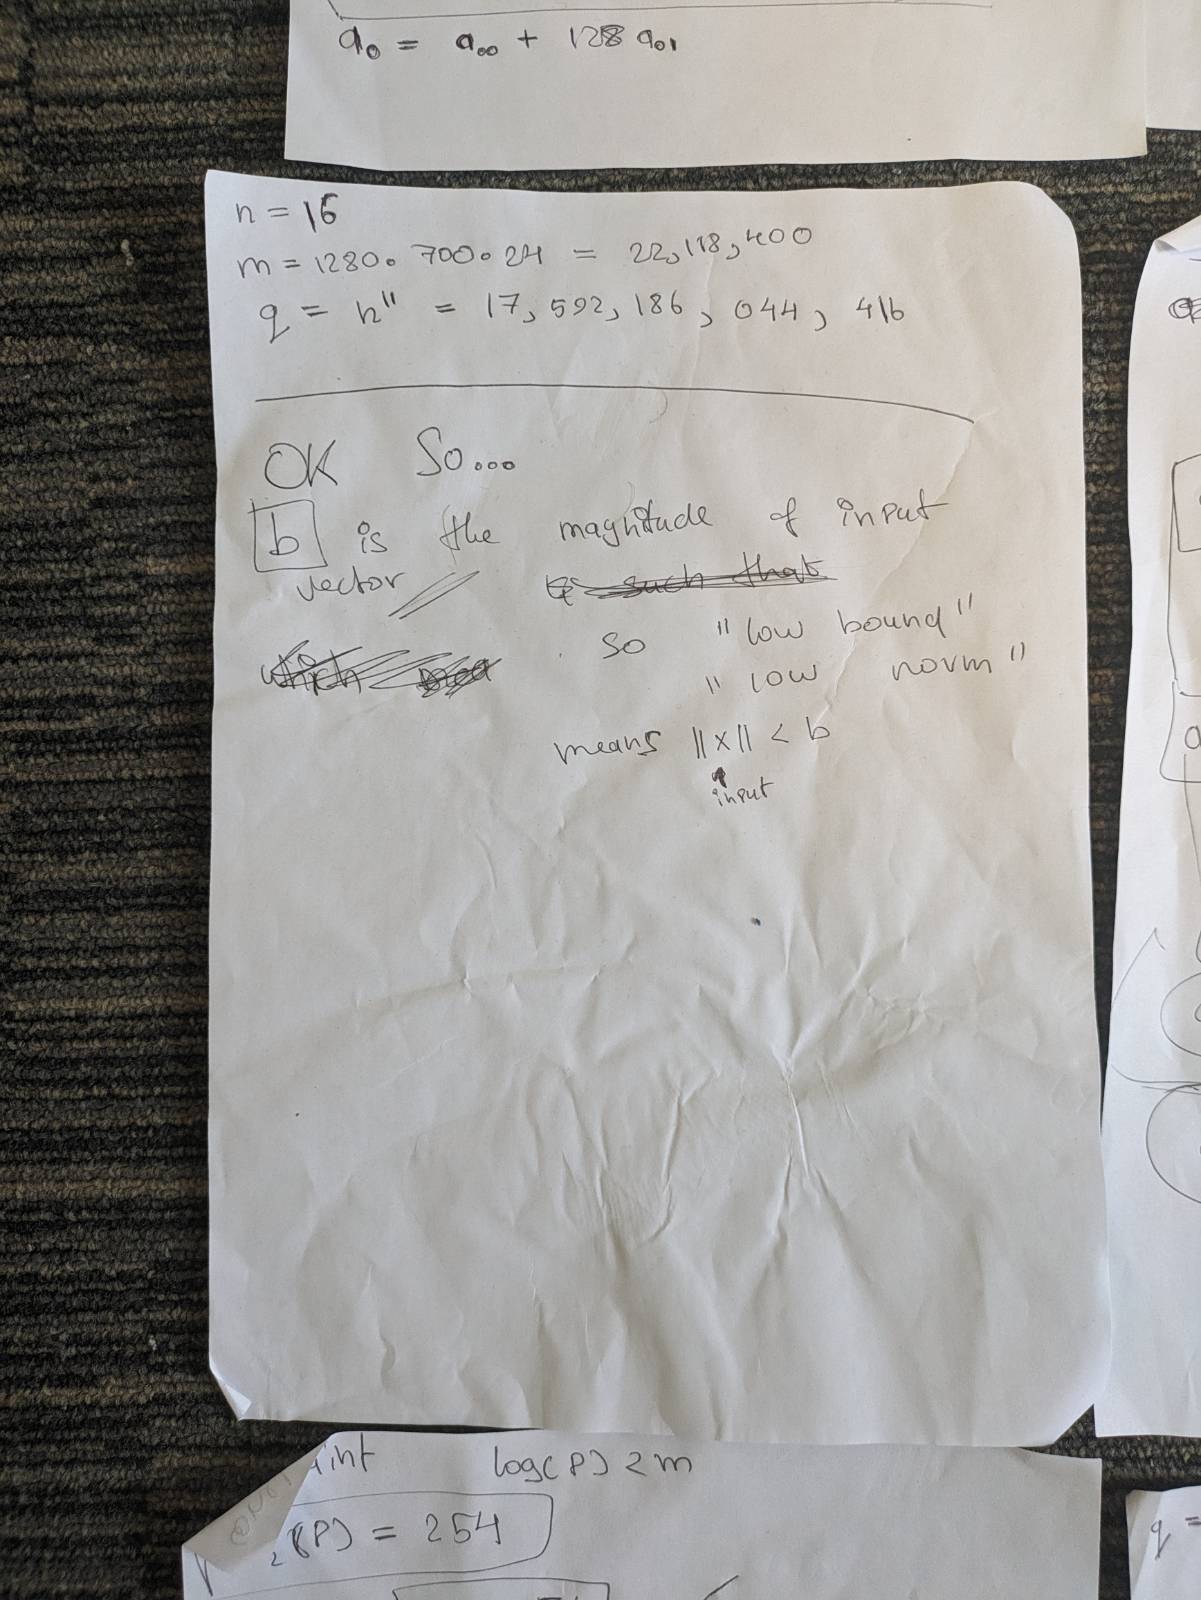 a₀ = a₀₀ + 128 a₀₁
n = 16
m = 1280 • 700 • 24 = 22,118,400
q = n¹¹ = 17,592,186,044,416
OK So...
b is the magnitude of input
vector
such that
so "low bound"
which
"low norm"
means ||x|| < b
input
int log(P) < m
(P) = 254
q =